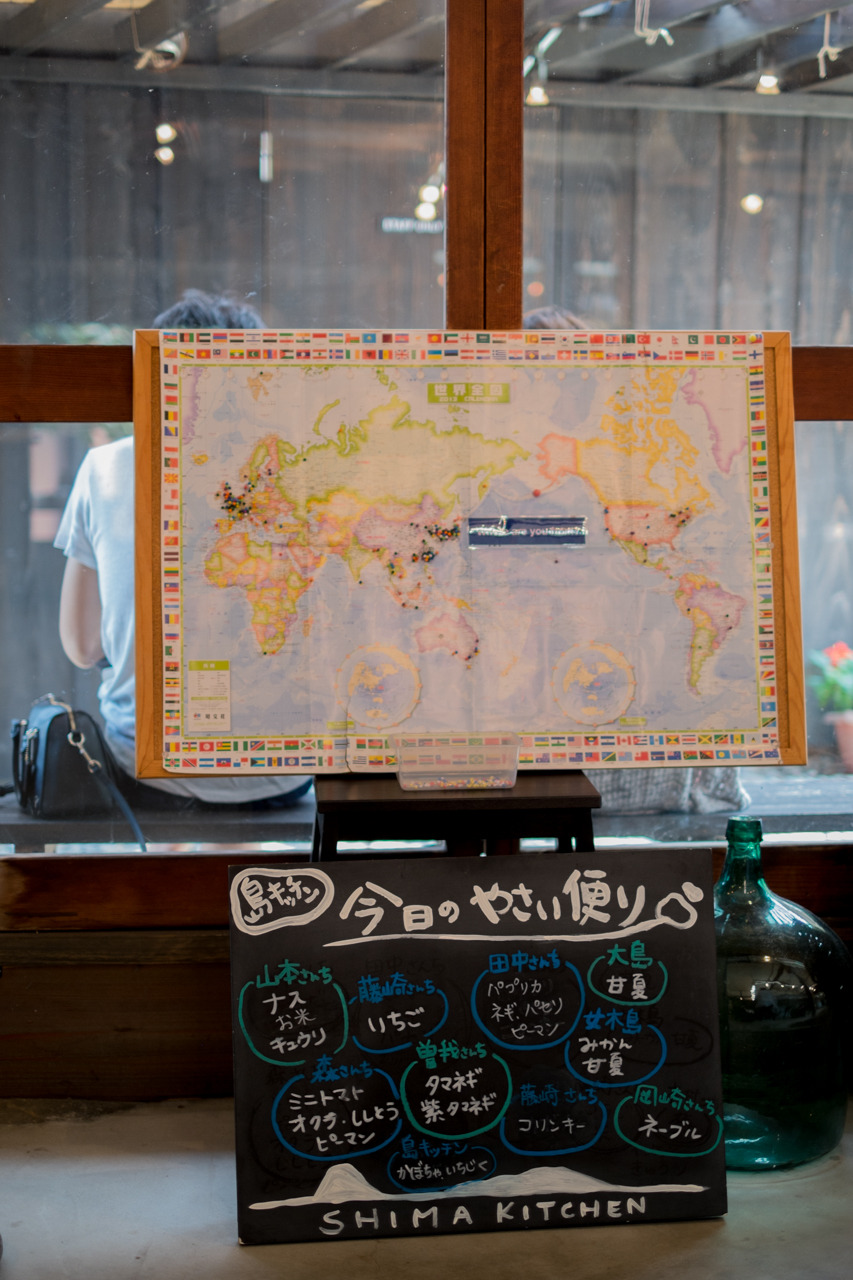 世界全図
島キッチン
今日のやさい便り
山本さんち
ナス
お米
キュウリ
藤崎さんち
いちご
田中さんち
パプリカ
ネギ、パセリ
ピーマン
大島
甘夏
女木島
みかん
甘夏
森さんち
ミニトマト
オクラ・ししとう
ピーマン
曽我さんち
タマネギ
紫タマネギ
藤崎さんち
コリンキー
岡崎さんち
ネーブル
島キッチン
かぼちゃ、いちじく
SHIMA KITCHEN